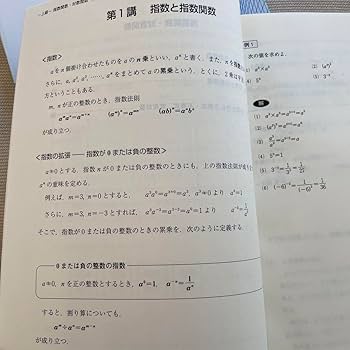 第1講 指数と指数関数
<指数>
aをn個掛け合わせたものをaのn乗といい，aⁿと書く．また，nを指数
さらに，a，a²，a³，……，aⁿをまとめてaの累乗という．とくに，2乗は平
方ということもある．
m，nが正の整数のとき，指数法則
aᵐaⁿ=aᵐ⁺ⁿ (aᵐ)ⁿ=aᵐⁿ (ab)ⁿ=aⁿbⁿ
が成り立つ．
<指数の拡張——指数が0または負の整数>
a≠0とする．指数nが0または負の整数のときにも，上の指数法則が成り立
aⁿの意味を定める．
例えば，m=3，n=0とすると， a³a⁰=a³⁺⁰=a³，a³≠0より a⁰=1
さらに，m=3，n=−3とすれば， a³a⁻³=a³⁻³=a⁰=1 より a⁻³=1/a³
そこで，指数が0または負の整数のときの累乗を，次のように定義する．
0または負の整数の指数
a≠0，nを正の整数とするとき，a⁰=1，a⁻ⁿ=1/aⁿ
すると，割り算についても，
aᵐ÷aⁿ=aᵐ⁻ⁿ
が成り立つ．
例1
次の値を求めよ．
(1)
(4) 5⁰
(5) 3⁻³
解
(1)
(2)
(3)
(4) 5⁰=1
(5)
(6) (−6)⁻²=1/(−6)²=1/36